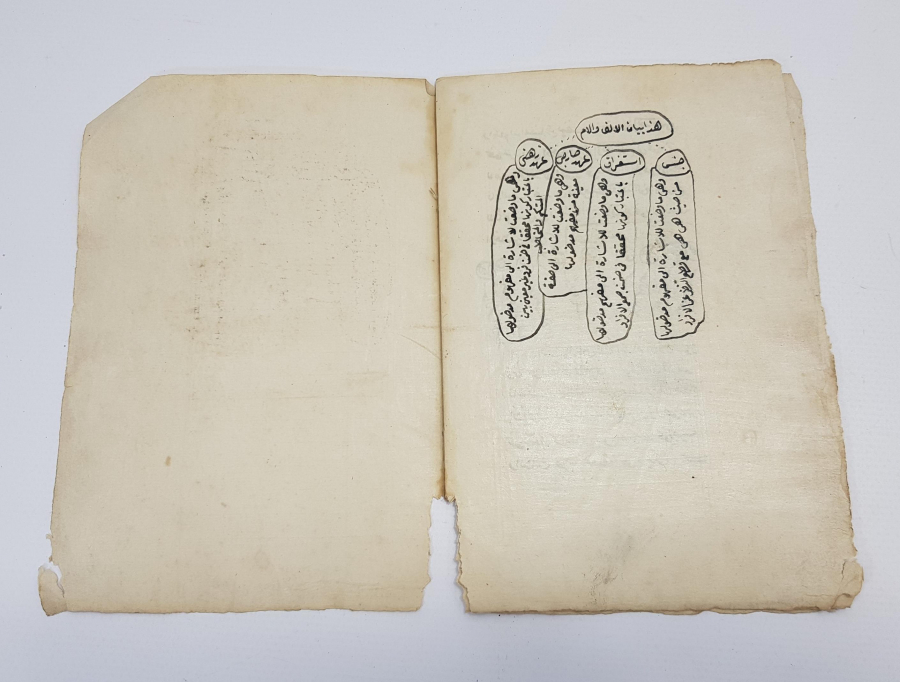 هذا بيان الالف والام
جنسي
وهي ما وضعت للاشارة الى مفهوم مدخولها
من حيث هي هي مع قطع النظر عن الافراد
استغراقي
وهي ما وضعت للاشارة الى مفهوم مدخولها
باعتبار كونها محققا في ضمن جميع الافراد
عهد خارجي
وهي ما وضعت للاشارة الى حصة
معينة من مفهوم مدخولها
المتكلم والمخاطب
عهد ذهني
وهي ما وضعت للاشارة الى مفهوم مدخولها
باعتبار كونها محققا في ضمن فرد غير معين بين